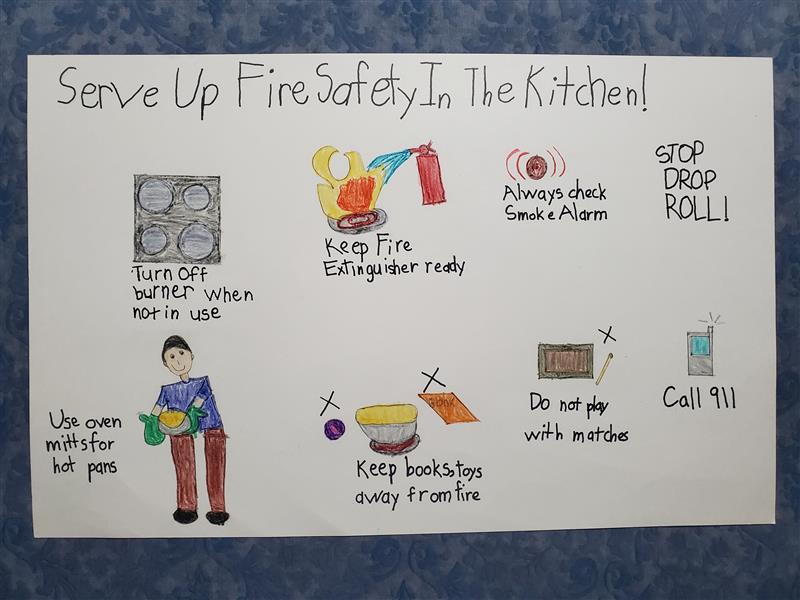 Serve Up Fire Safety In The Kitchen!
Turn Off
burner when
not in use
Keep Fire
Extinguisher ready
Always check
Smoke Alarm
STOP
DROP
ROLL!
Use oven
mitts for
hot pans
Keep books, toys
away from fire
Do not play
with matches
Call 911